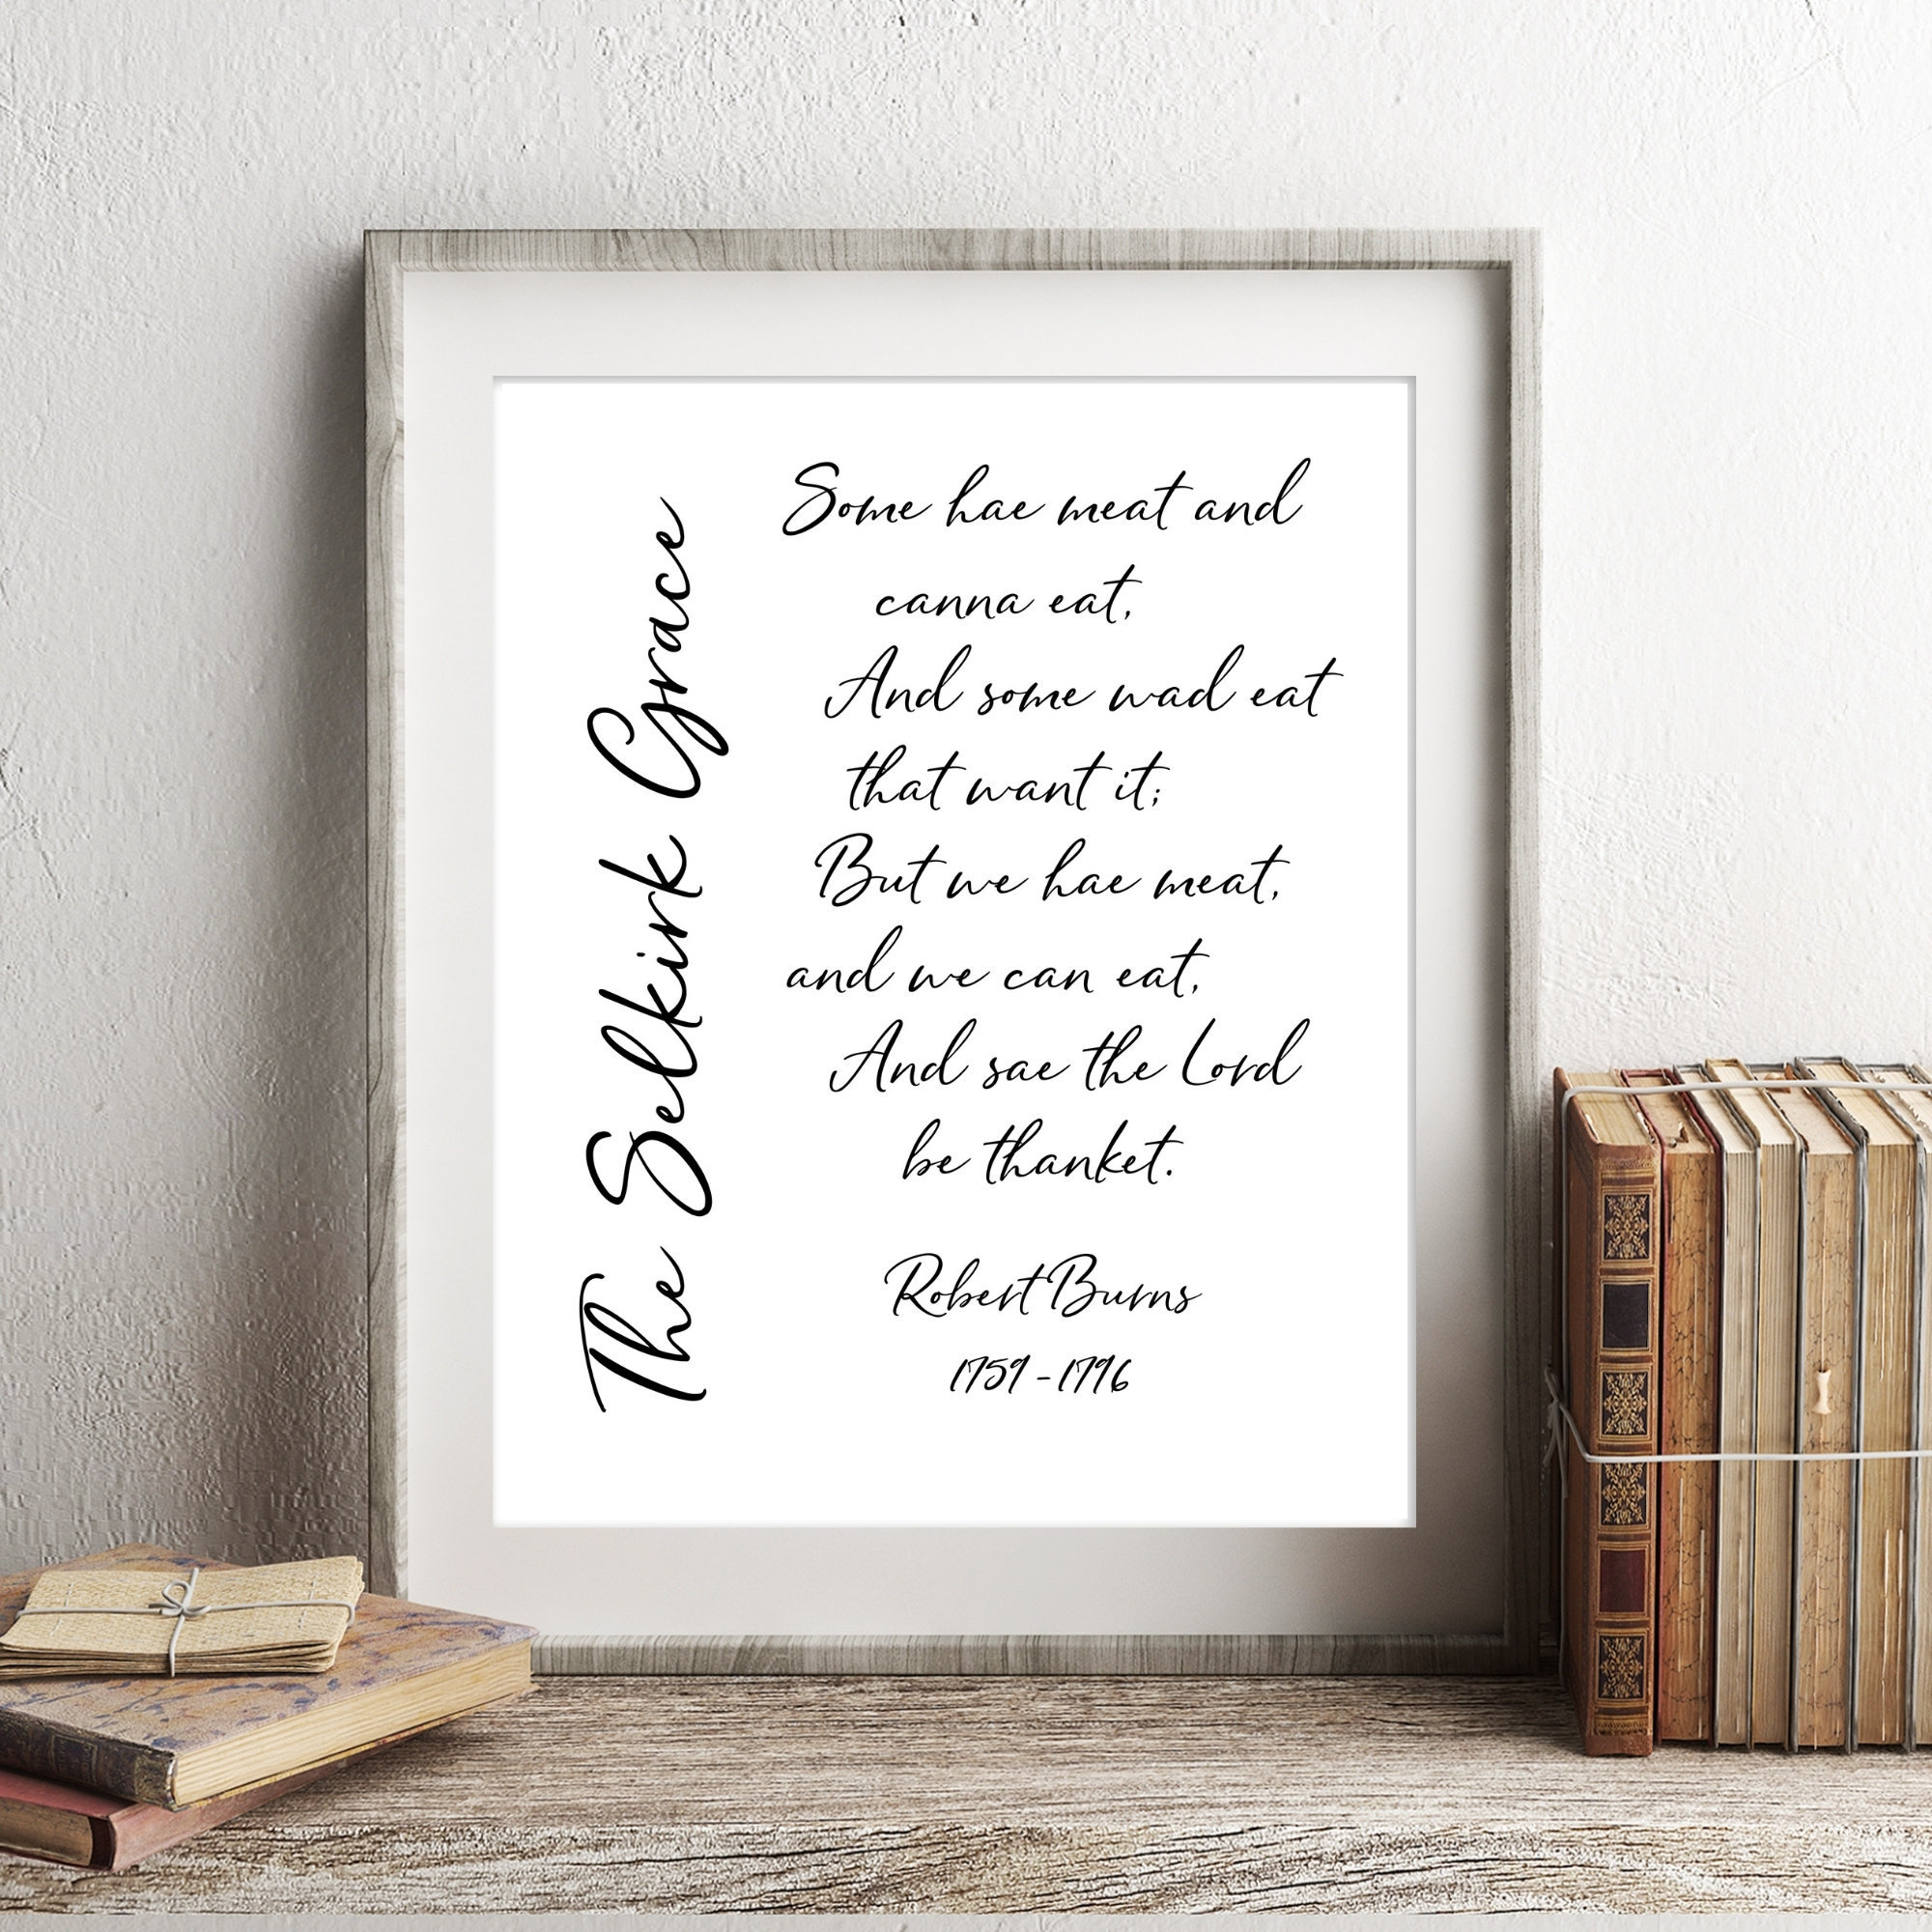 The Selkirk Grace
Some hae meat and
canna eat,
And some wad eat
that want it;
But we hae meat,
and we can eat,
And sae the Lord
be thanket.
Robert Burns
1759 - 1796